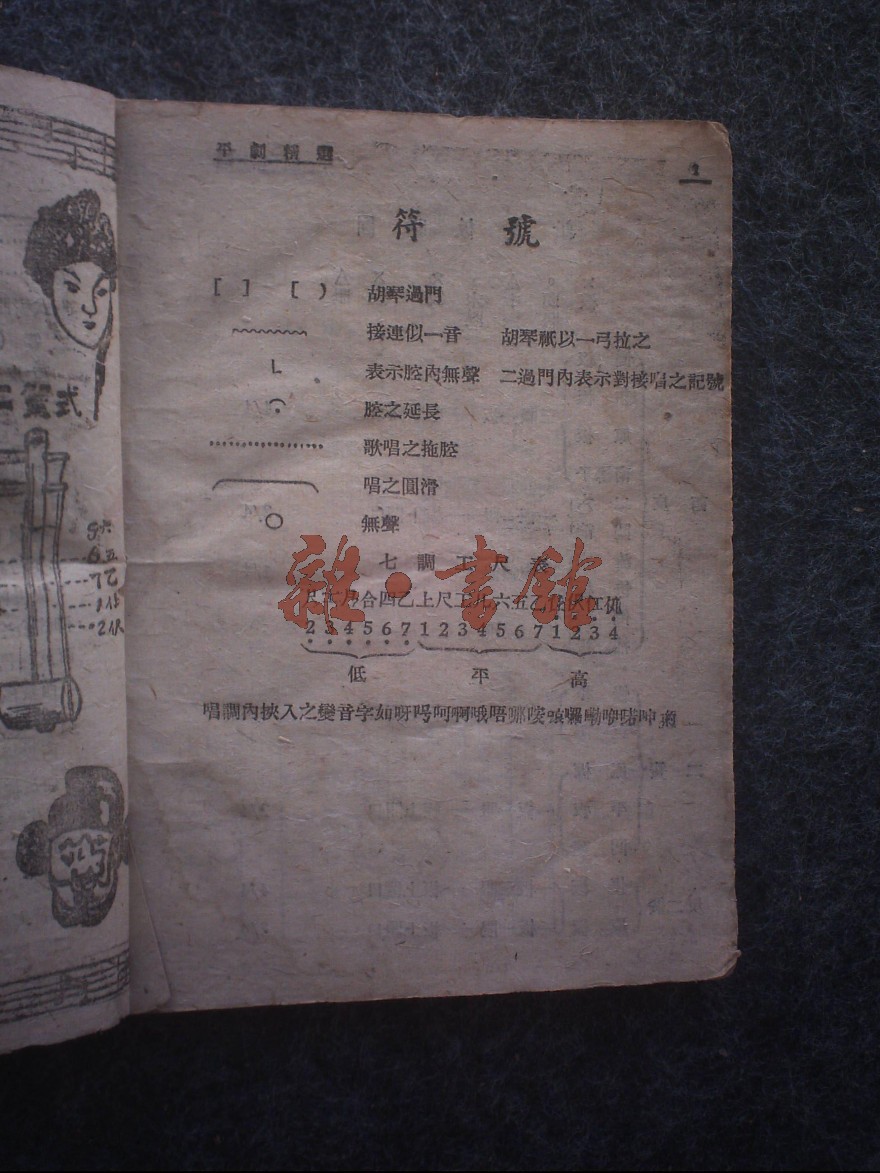 平劇精選
符號
[ ] [ ) 胡琴過門
接連似一音 胡琴祇以一弓拉之
表示腔內無聲 二過門內表示對接唱之記號
腔之延長
歌唱之拖腔
唱之圓滑
無聲
七調工尺表
合四乙上尺工凡六五乙
2 3 4 5 6 7 1 2 3 4 5 6 7 1 2 3 4
低 平 高
唱調內挾入之變音字如呀呺呵啊哦唔
雜·書館
二簧式